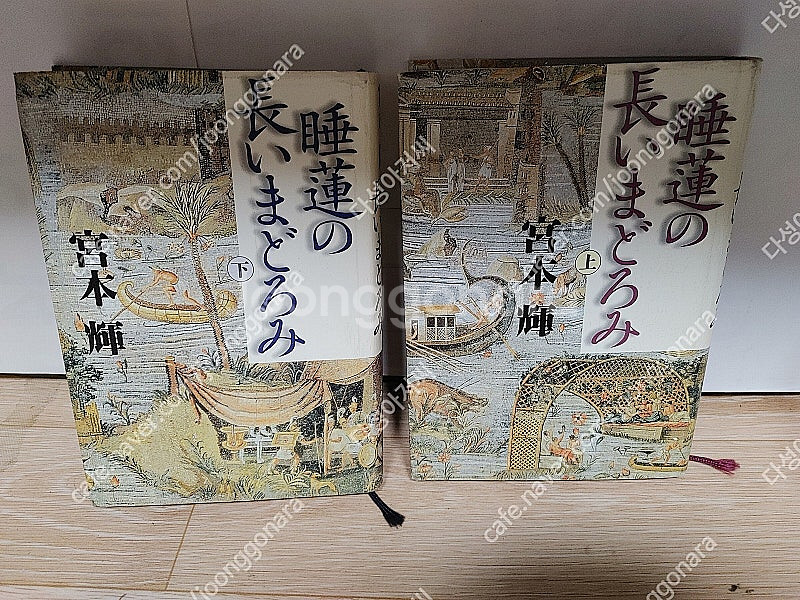 睡蓮の
長いまどろみ
下
宮本 輝
睡蓮の
長いまどろみ
上
宮本 輝
joonggonara
cafe.naver.com/joonggonara
다성아기씨